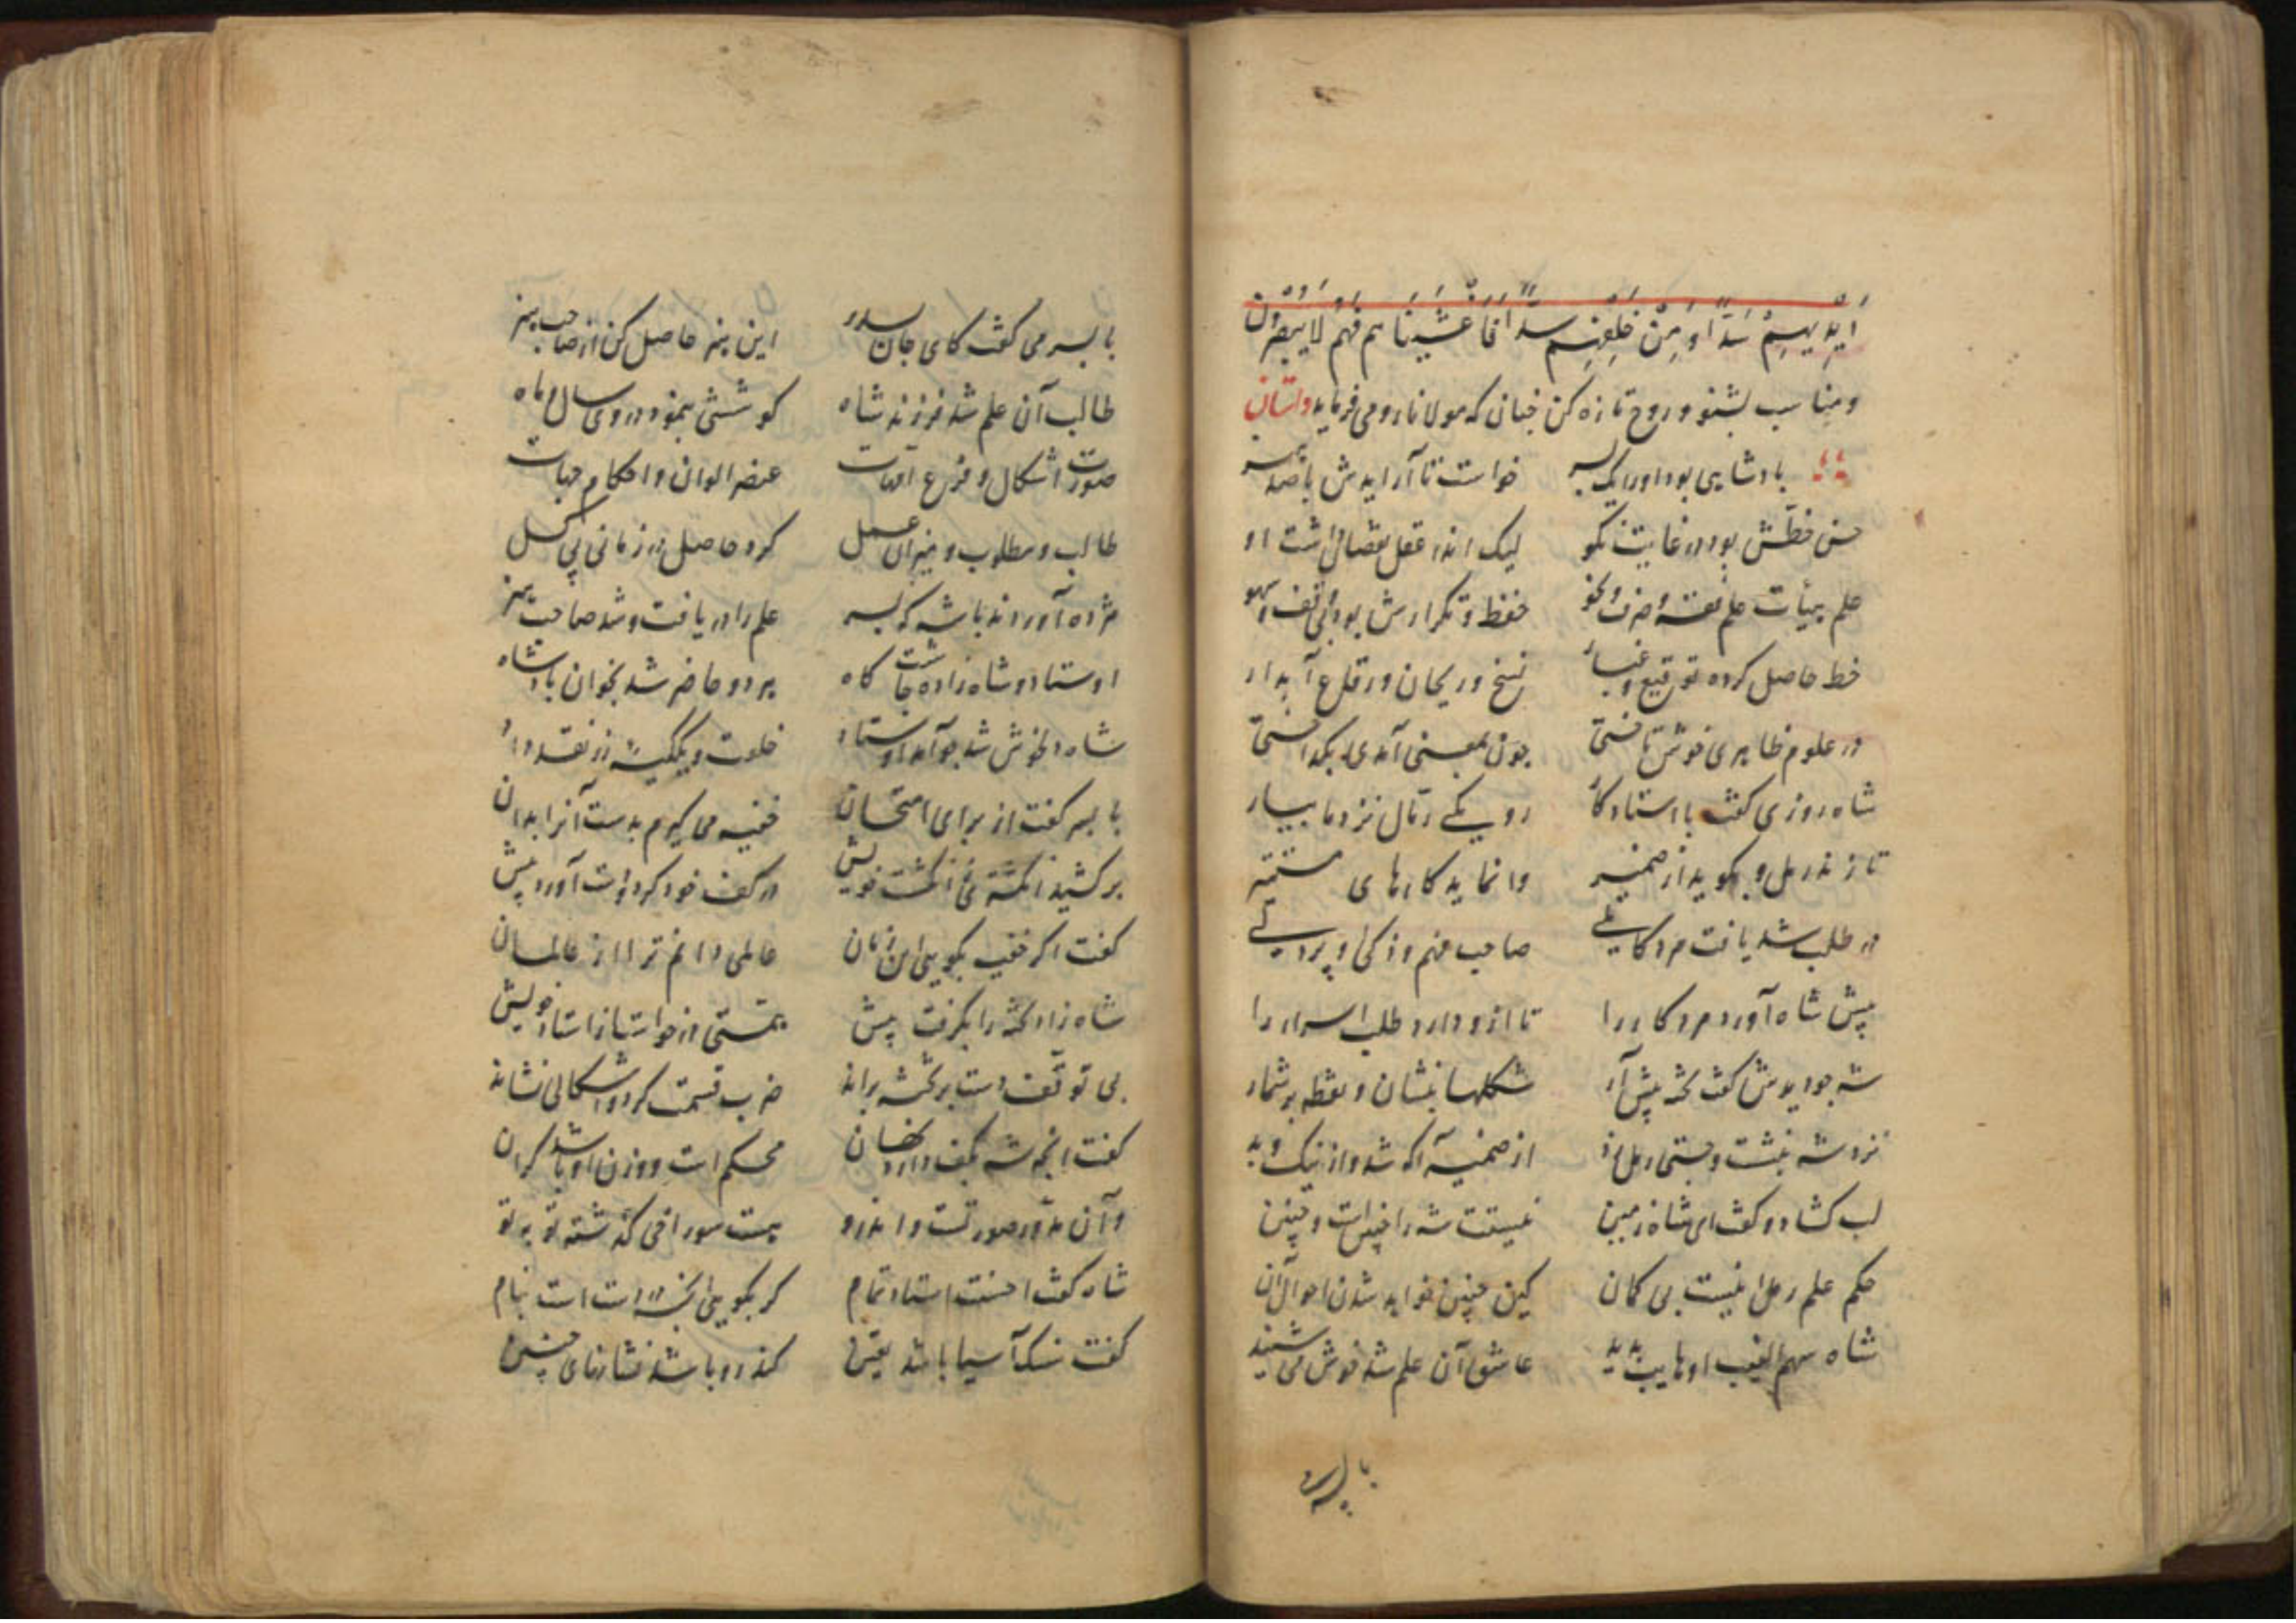 اَیْدِیهِمْ سَدًّا وَمِنْ خَلْفِهِمْ سَدًّا فَاَغْشَیْنَاهم فَهُمْ لَا یُبْصِرُوْنَ
و مناسب بشنو و روح تازه کن چنانکه مولانا رومی فرماید داستان
بادشاهی بود او را یک پسر خواست تا آرایدش با صد هنر
حسن خطش بود در غایت نکو لیک اندر عقل نقصان داشت او
علم هیأت علم فقه و صرف و نحو حفظ و تکرارش بود بی سهو
خط حاصل کرده توقیع و غبار نسخ و ریحان و رقاع آبدار
در علوم ظاهری خوش تاختی چون بمعنی آمدی بگداختی
شاه روزی گفت با استاد کار رو یکی رمال نزد ما بیار
تا زند رمل و بگوید از ضمیر وا نماید کارهای مستتیر
در طلب شد یافت مرد کاملی صاحب فهم و ذکی و پر دلی
پیش شاه آورد مرد کار را تا ازو دارد طلب اسرار را
شه چو دیدش گفت تخته پیش آر شکلها بنشان و نقطه بر شمار
نزد شه بنشست و جستی رمل زد از ضمیر آگه شد و از نیک و بد
لب گشاد و گفت ای شاه زمین نیتت شه را چنین است و چنین
حکم علم رمل اینست بی گمان کین چنین خواهد شدن احوال آن
شاه سهم الغیب او هایب بدید عاشق آن علم شد خوش می شنید
با پسر می
با پسر می گفت کای جان پدر این هنر حاصل کن از صاحب هنر
طالب آن علم شد فرزند شاه کوششی بنمود در وی سال و ماه
صورت اشکال و فرع امهات عنصر الوان و احکام جهات
طالب و مطلوب و میزان عمل کرد حاصل در زمانی بی کسل
مژده آوردند با شه که پسر علم را دریافت و شد صاحب هنر
اوستاد و شاهزاده چاشت گاه هر دو حاضر شد بخوان پادشاه
شاه دلخوش شد چو آمد اوستاد خلعت و یک کیسه زر نقد داد
با پسر گفت از برای امتحان خفیه می گیرم بدست آنرا بدان
بر کشید انگشتری ز انگشت خویش در کف خود کرد و دست آورد پیش
گفت اگر خفیه بگویی این زمان عالمی دانم ترا از عالمان
شاهزاده تخته را بگرفت پیش همتی در خواست از استاد خویش
بی توقف دست بر تخته براند ضرب قسمت کرد و اشکالی نشاند
گفت آنچه شه بکف دارد نهان محکم است و وزن او باشد گران
و آن مدور صورتست و اندرو هست سوراخی گذشته تو بتو
شاه گفت احسنت استاد تمام گر بگویی آنچه در دست است نام
گفت سنگ آسیا باشد یقین گندرو باشد نشانهای چنین